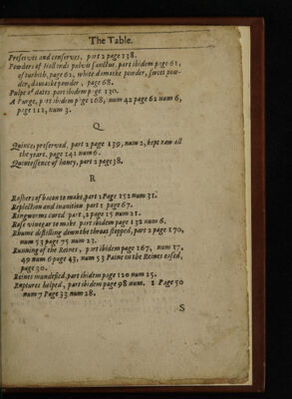 The Table.
Preserves and conserves, part 2 page 138.
Powders of Hollands pulvis sanctus. part ibidem page 61,
of turbith, page 62, white damaske powder, sweet pow-
der, damaske powder, page 68.
Pulpe of dates. part ibidem page 130.
A Purge, part ibidem page 108, num 42 page 62 num 6,
page 112, num 3.
Q
Quinces preserved, part 2 page 139, num 2, kept raw all
the yeare, page 141 num 6.
Quintessence of honey, part 2 page 38.
R
Rashers of bacon to make, part 2 Page 152 num 31.
Repletion and inanition part 1 page 67.
Ringwormes cured part, 2 page 15 num 21.
Rose vinegar to make. part ibidem page 132 num 6.
Rhume distilling down the throat stopped, part 2 page 170,
num 53 page 75 num 23.
Running of the Reines, part ibidem page 167, num 17,
49 num 6 page 43, num 53 Paine in the Reines eased,
page 30.
Reines mundified, part ibidem page 120 num 15.
Ruptures helped, part ibidem page 98 num. 1 Page 50
num 7 Page 33 num 28.
S